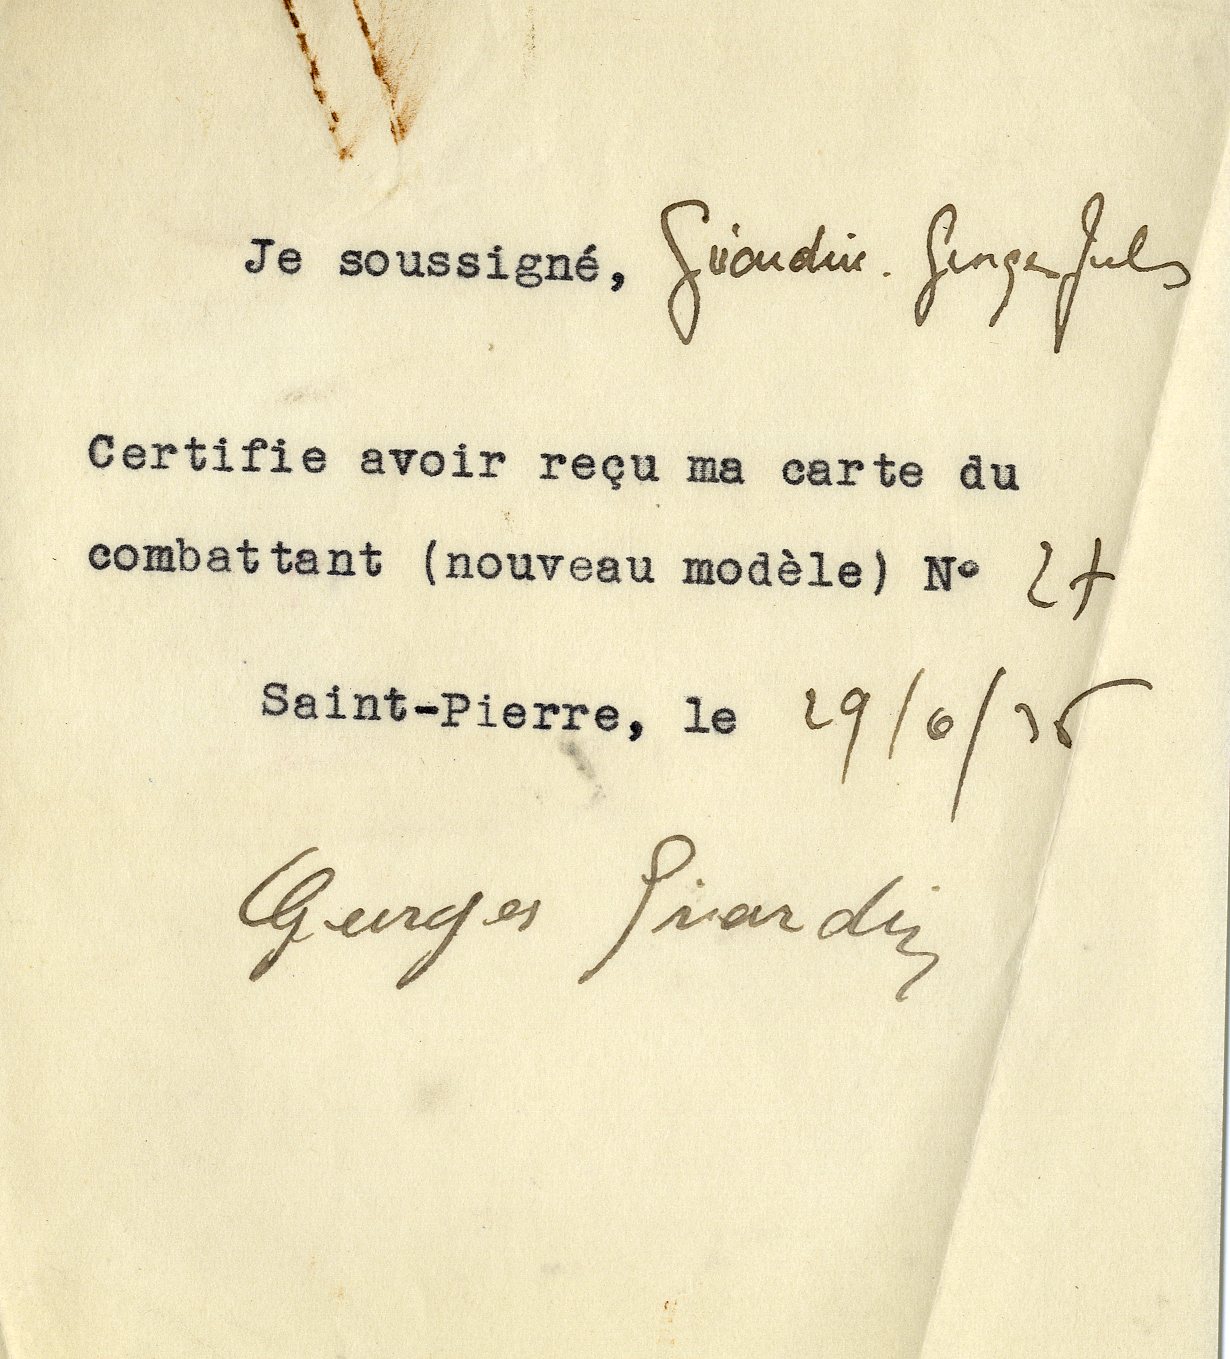 Je soussigné, Girardin. Georges Jules
Certifie avoir reçu ma carte du
combattant (nouveau modèle) N° 27
Saint-Pierre, le 29/6/36
Georges Girardin